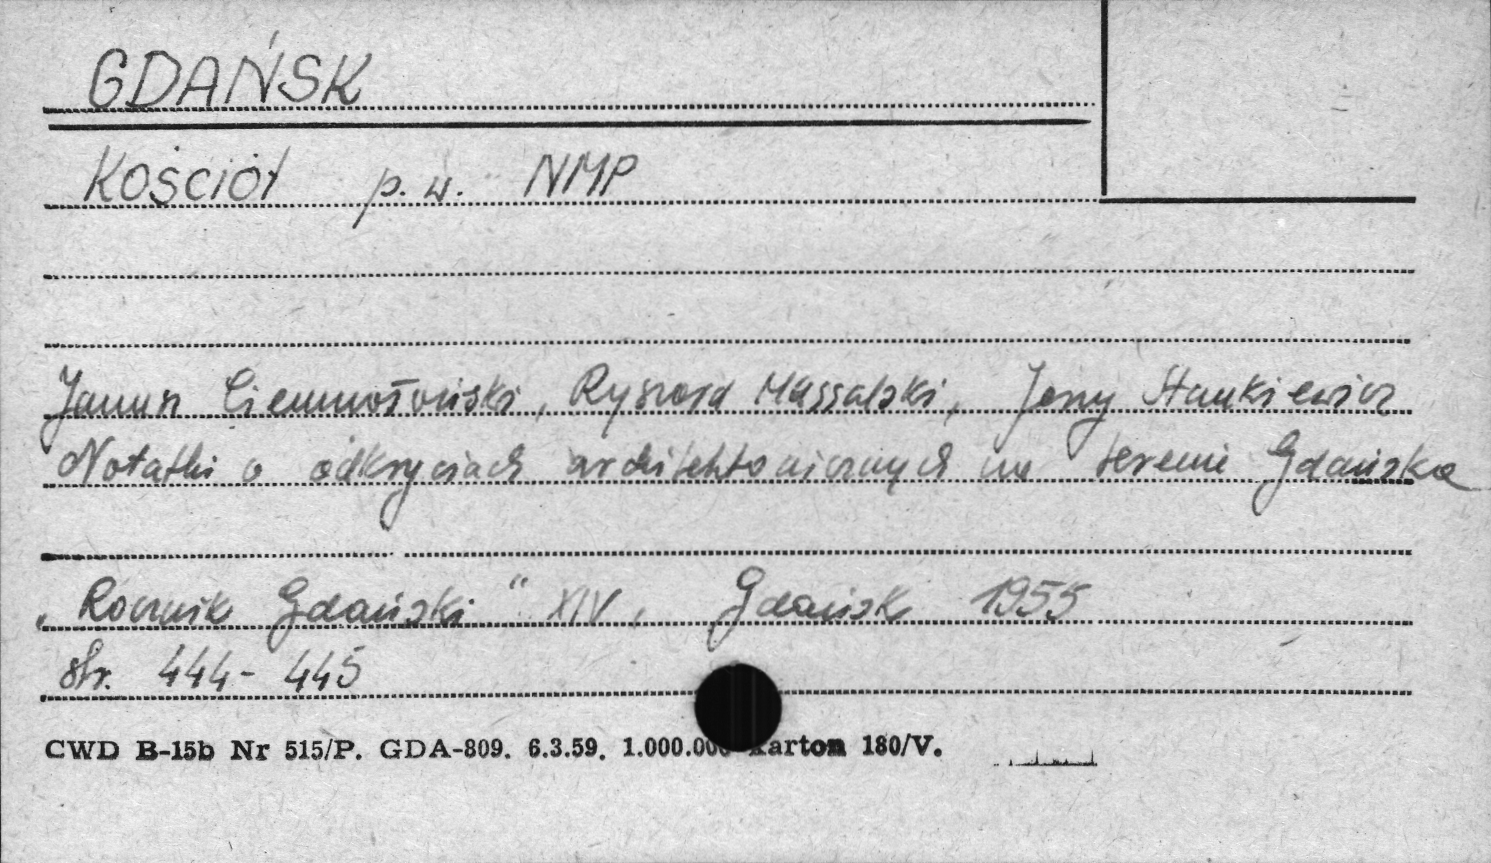 GDAŃSK
Kościół p.w. NMP
Janusz Ciemnołoński, Ryszard Massalski, Jerzy Stankiewicz
Notatki o odkryciach architektonicznych na terenie Gdańska
„Rocznik Gdański" XIV, Gdańsk 1955
str. 444-445
CWD B-15b Nr 515/P. GDA-809. 6.3.59. 1.000.000 Karton 180/V.